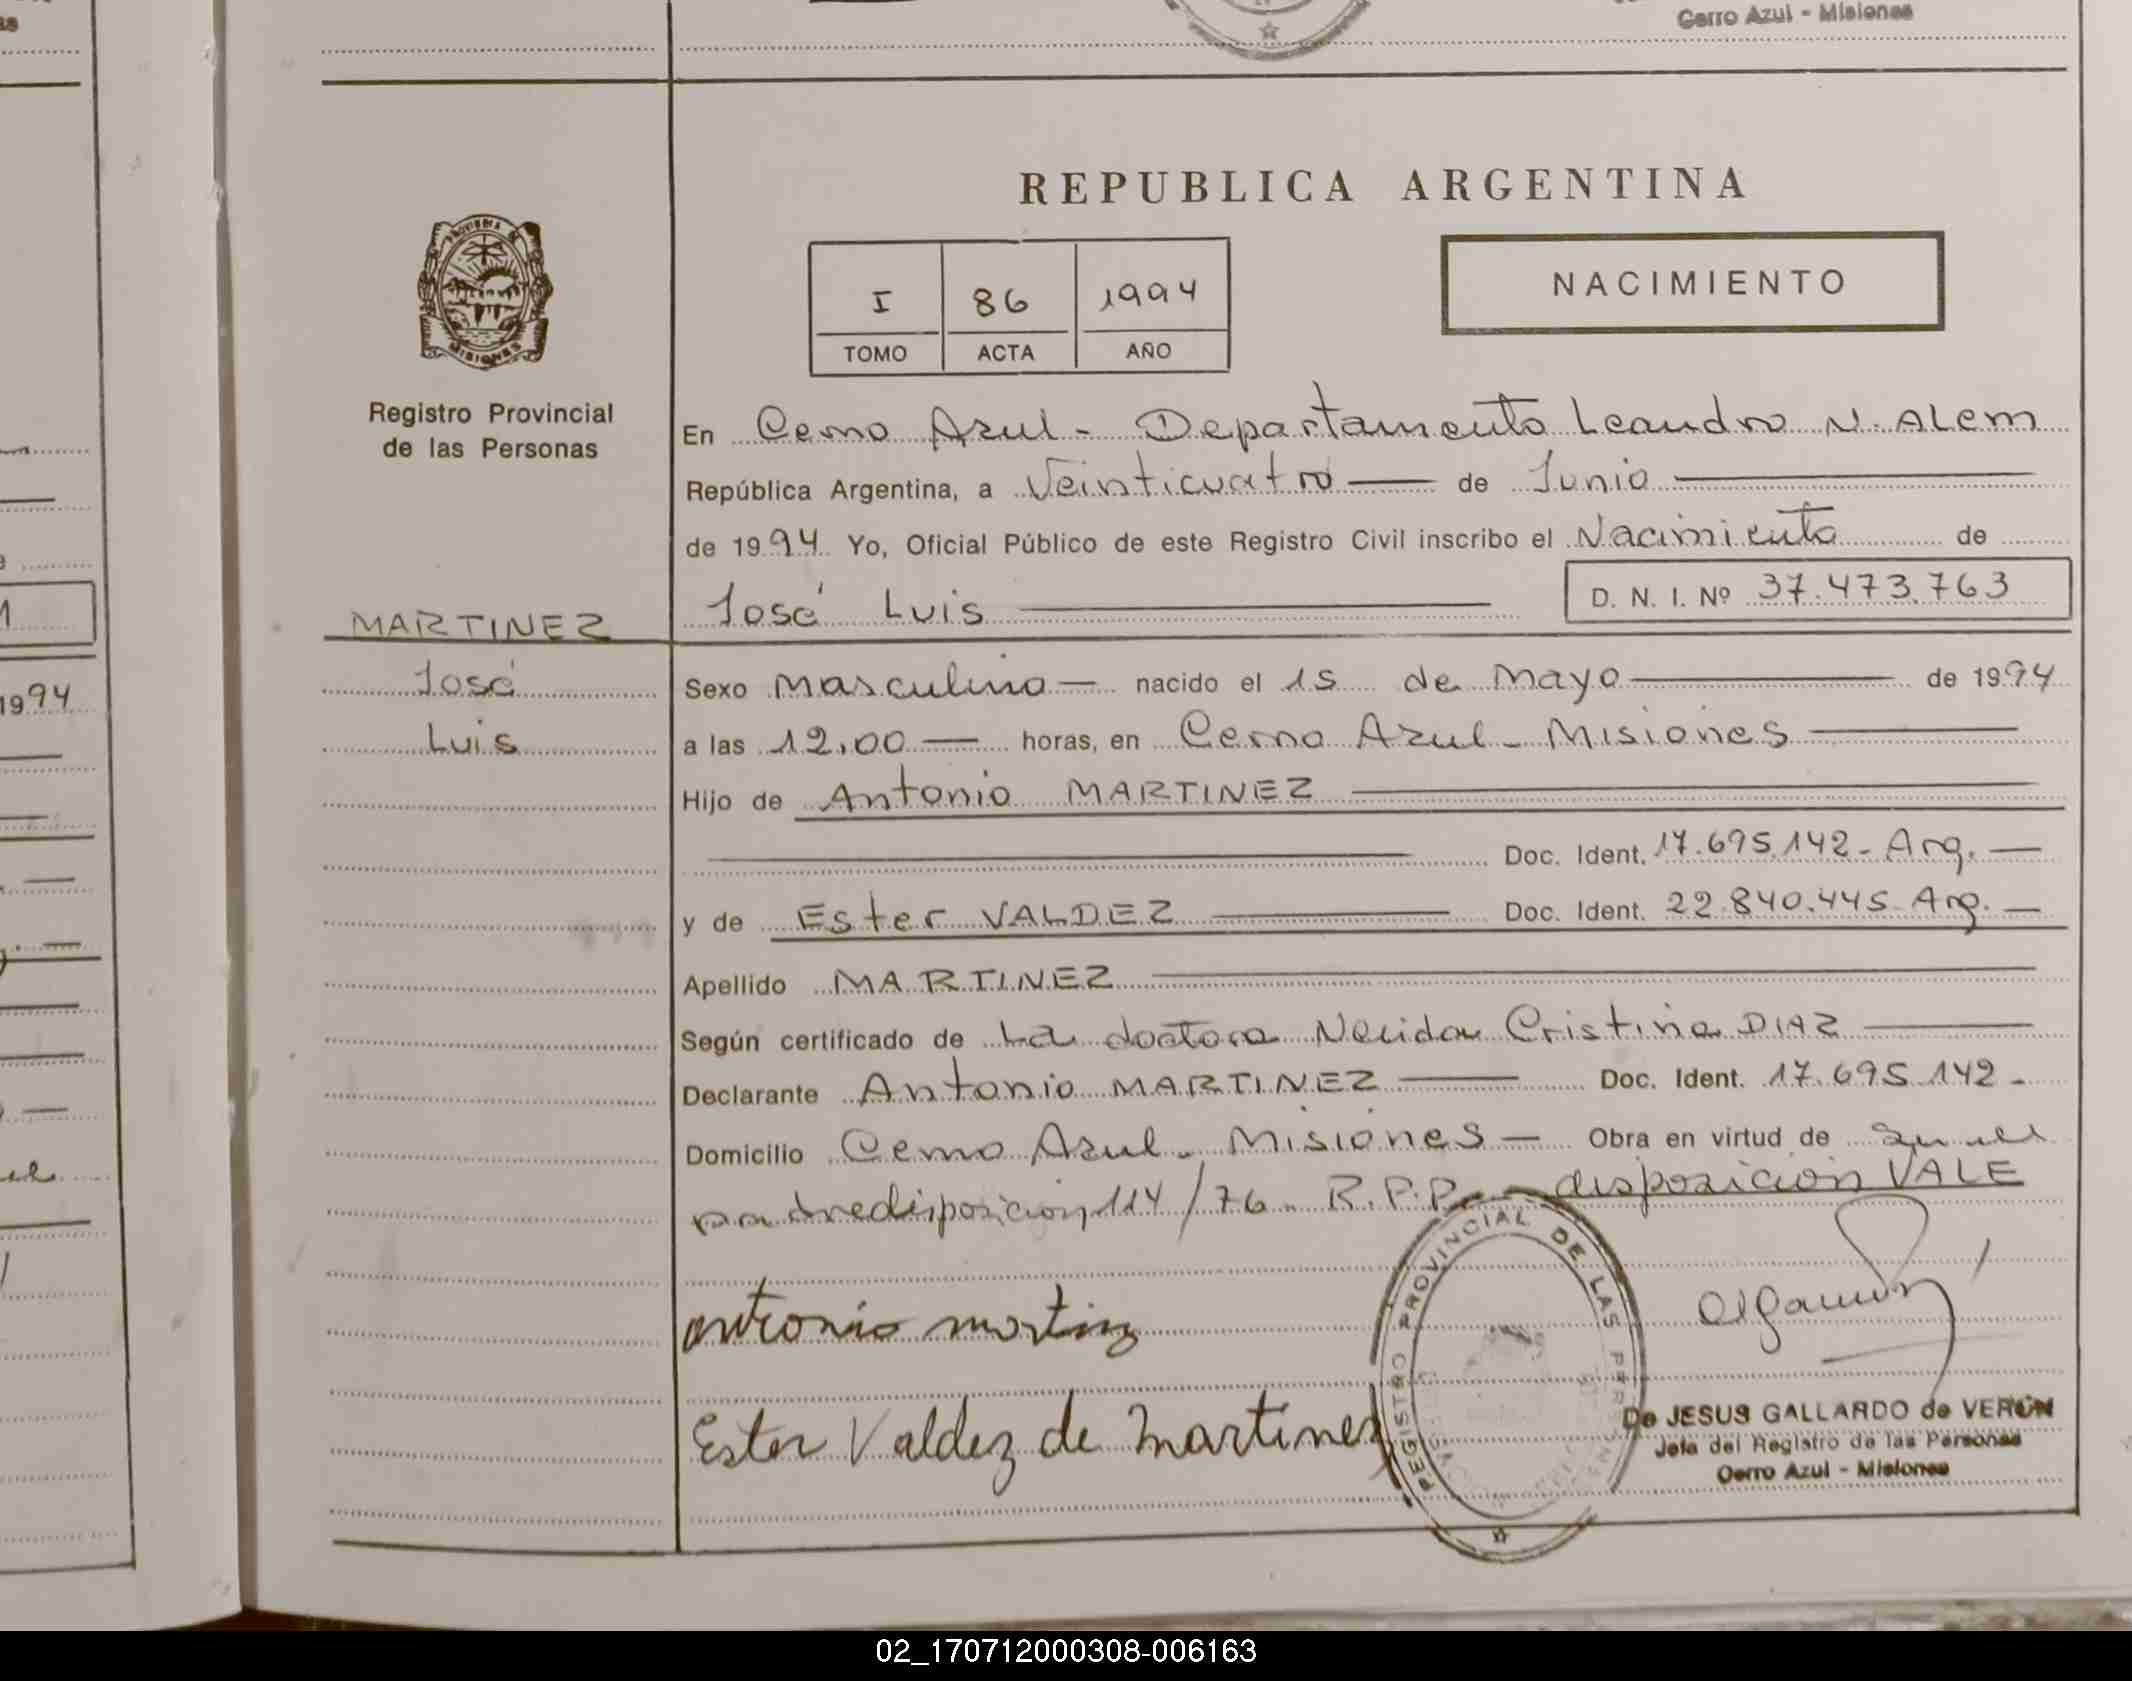 Cerro Azul - Misiones
REPUBLICA ARGENTINA
PROVINCIA DE
MISIONES
Registro Provincial
de las Personas
I 86 1994
TOMO ACTA AÑO
NACIMIENTO
En Cerro Azul - Departamento Leandro N. ALem
República Argentina, a Veinticuatro de Junio
de 1994 Yo, Oficial Público de este Registro Civil inscribo el Nacimiento de
José Luis D. N. I. Nº 37.473.763
MARTINEZ
José
Luis
Sexo Masculino nacido el 15 de Mayo de 1994
a las 12,00 horas, en Cerro Azul - Misiones
Hijo de Antonio MARTINEZ
Doc. Ident. 17.695.142 - Arg.
y de Ester VALDEZ Doc. Ident. 22.840.445 Arg.
Apellido MARTINEZ
Según certificado de La doctora Nelida Cristina DIAZ
Declarante Antonio MARTINEZ Doc. Ident. 17.695.142 -
Domicilio Cerro Azul - Misiones Obra en virtud de
disposicion 114/76 - R.P.P. - disposicion VALE
antonio
Ester Valdez de Martinez
REGISTRO PROVINCIAL DE LAS PERSONAS
De JESUS GALLARDO de VERÓN
Jefa del Registro de las Personas
Cerro Azul - Misiones
1994
02_170712000308-006163